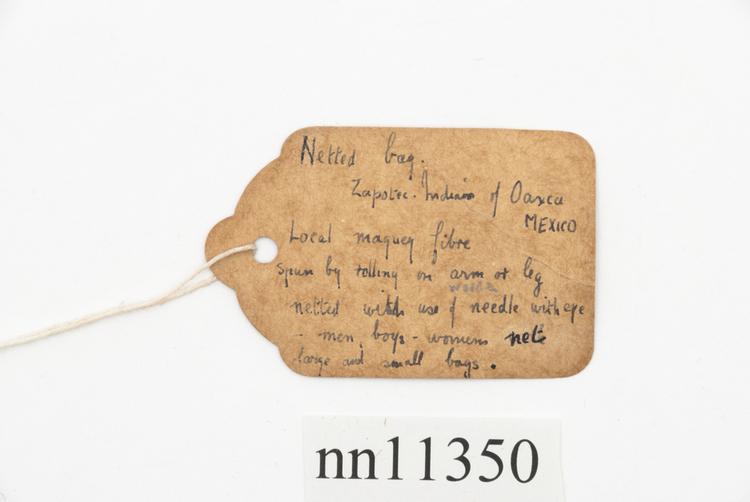 Netted bag.
Zapotec Indians of Oaxca
MEXICO
Local maguey fibre
spun by rolling on arm or leg
netted with use of needle with eye
- men, boys - womens net
large and small bags.
nn11350